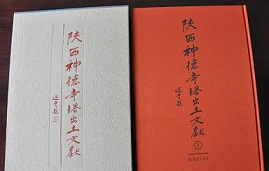 陕西神德寺塔出土文獻
陕西神德寺塔出土文獻
1